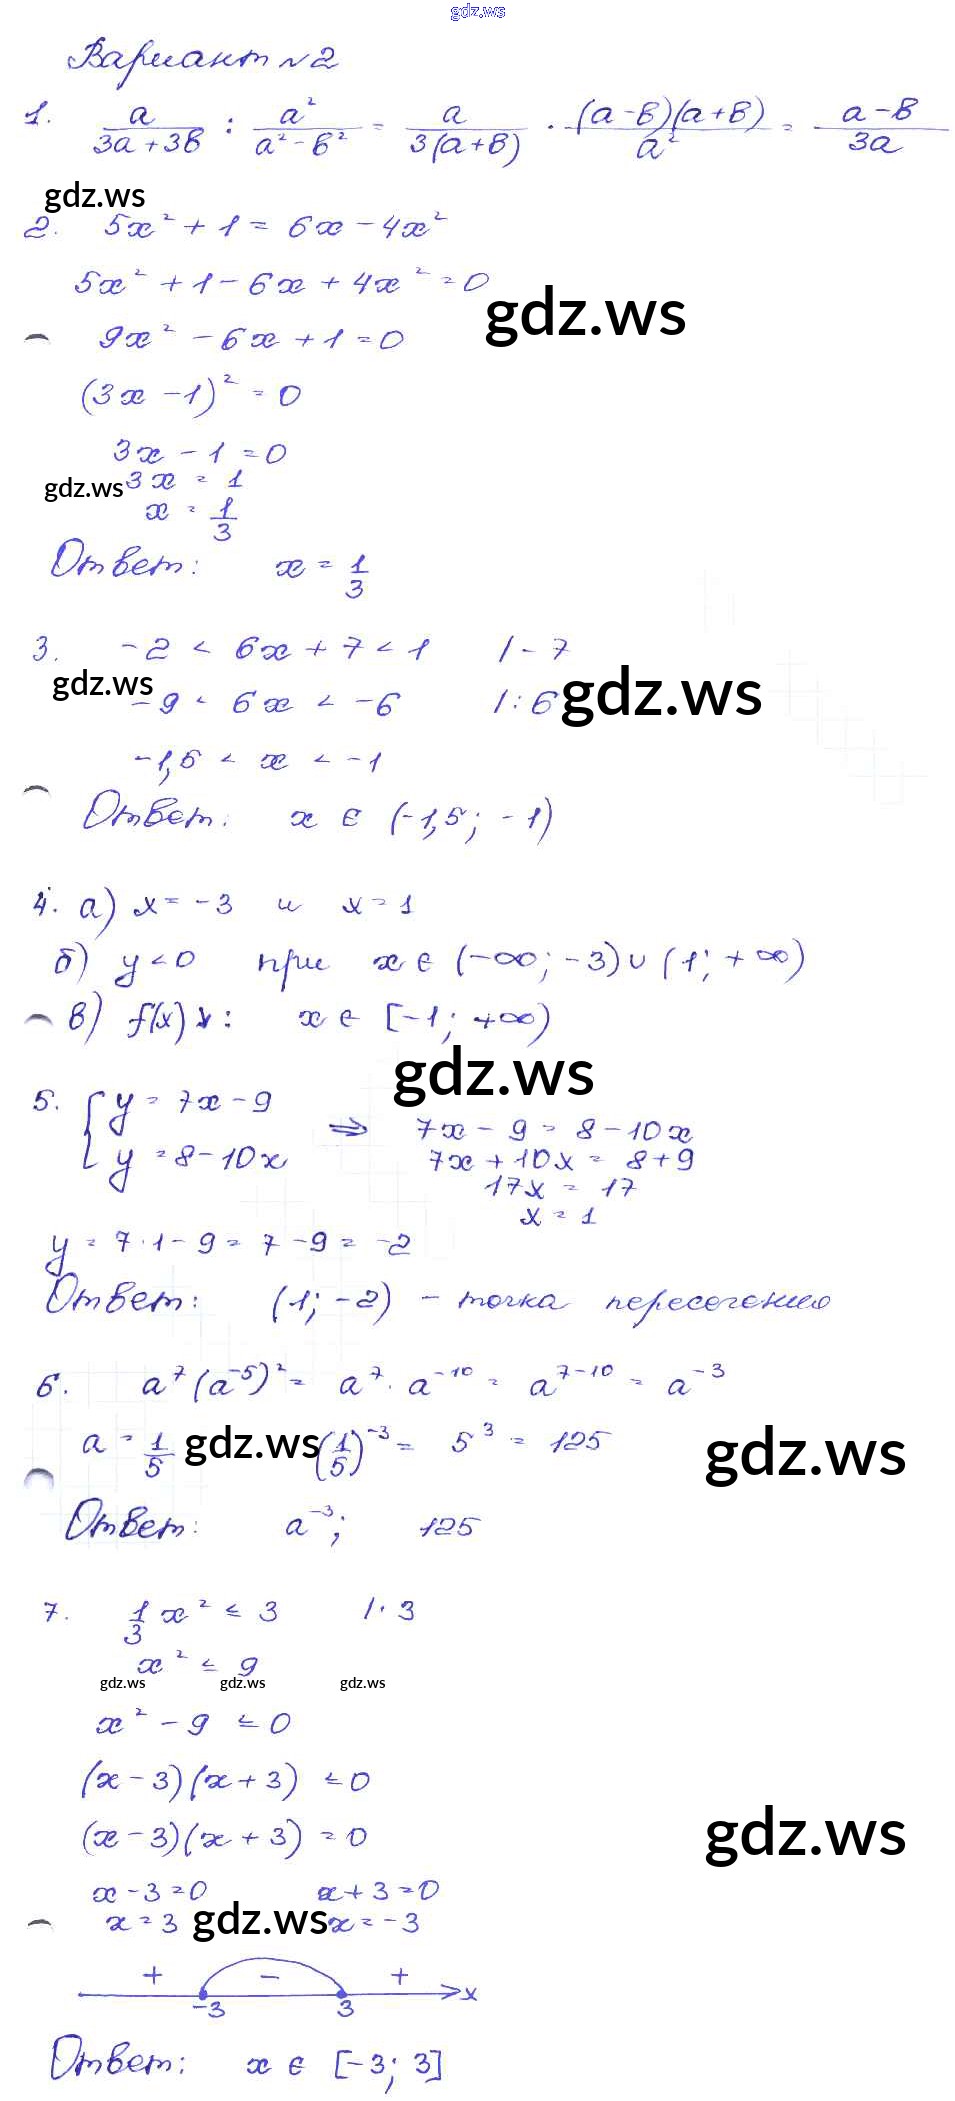 gdz.ws
Вариант №2
1. a/(3a+3в) : a²/(a²-в²) = a/(3(a+в)) · (a-в)(a+в)/a² = (a-в)/(3a)
gdz.ws
2. 5x² + 1 = 6x - 4x²
5x² + 1 - 6x + 4x² = 0
gdz.ws
9x² - 6x + 1 = 0
(3x - 1)² = 0
3x - 1 = 0
gdz.ws 3x = 1
x = 1/3
Ответ: x = 1/3
3. -2 < 6x + 7 < 1 | - 7
gdz.ws -9 < 6x < -6 | : 6 gdz.ws
-1,5 < x < -1
Ответ: x ∈ (-1,5; -1)
4. а) x = -3 и x = 1
б) y < 0 при x ∈ (-∞; -3) ∪ (1; +∞)
в) f(x) ↘: x ∈ [-1; +∞)
gdz.ws
5. { y = 7x - 9
y = 8 - 10x ⇒ 7x - 9 = 8 - 10x
7x + 10x = 8 + 9
17x = 17
x = 1
y = 7·1 - 9 = 7 - 9 = -2
Ответ: (1; -2) - точка пересечения
6. a⁷(a⁻⁵)² = a⁷ · a⁻¹⁰ = a⁷⁻¹⁰ = a⁻³
a = 1/5 gdz.ws (1/5)⁻³ = 5³ = 125 gdz.ws
Ответ: a⁻³; 125
7. 1/3 x² ≤ 3 | · 3
x² ≤ 9
gdz.ws gdz.ws gdz.ws
x² - 9 ≤ 0
(x - 3)(x + 3) ≤ 0
(x - 3)(x + 3) = 0 gdz.ws
x - 3 = 0 x + 3 = 0
x = 3 gdz.ws x = -3
+ - +
-3 3 x
Ответ: x ∈ [-3; 3]